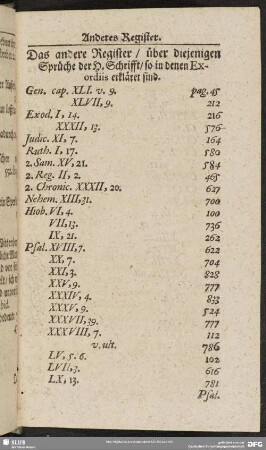 Anderes Register.
Das andere Register / über diejenigen
Sprüche der H. Schrifft / so in denen Ex-
ordiis erkläret sind.
Gen. cap. XLI. v. 9. pag. 45
XLVII, 9. 212
Exod. I, 14. 216
XXXII, 13. 576
Judic. XI, 7. 164
Ruth. I, 17. 580
2. Sam. XV, 21. 584
2. Reg. II, 2. 465
2. Chronic. XXXII, 20. 627
Nehem. XIII, 31. 700
Hiob. VI, 4. 100
VII, 13. 736
IX, 21. 262
Psal. XVIII, 7. 622
XX, 7. 704
XXI, 3. 828
XXV, 9. 777
XXXIV, 4. 833
XXXV, 9. 524
XXXVII, 39. 777
XXXVIII, 7. 112
v. ult. 786
LV, 5. 6. 102
LVII, 3. 616
LX, 13. 781
Psal.
SLUB
DFG